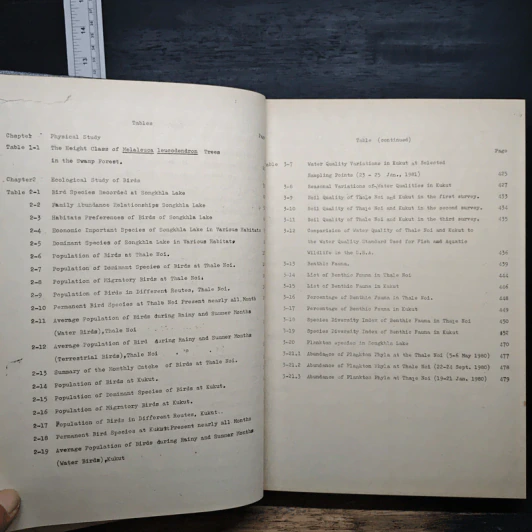 Tables
Chapter Physical Study
Table 1-1 The Height Class of Melaleuca leucodendron Trees
in the Swamp Forest.
Chapter2 Ecological Study of Birds
Table 2-1 Bird Species Recorded at Songkhla Lake
2-2 Family Abundance Relationships Songkhla Lake
2-3 Habitats Preferences of Birds of Songkhla Lake
2-4 Economic Important Species of Songkhla Lake in Various Habitats
2-5 Dominant Species of Songkhla Lake in Various Habitats
2-6 Population of Birds at Thale Noi.
2-7 Population of Dominant Species of Birds at Thale Noi.
2-8 Population of Migratory Birds at Thale Noi.
2-9 Population of Birds in Different Routes, Thale Noi.
2-10 Permanent Bird Species at Thale Noi Present nearly all Month
2-11 Average Population of Birds during Rainy and Summer Months
(Water Birds),Thale Noi
2-12 Average Population of Bird during Rainy and Summer Months
(Terrestrial Birds),Thale Noi
2-13 Summary of the Monthly Catche of Birds at Thale Noi.
2-14 Population of Birds at Kukut.
2-15 Population of Dominant Species of Birds at Kukut.
2-16 Population of Migratory Birds at Kukut.
2-17 Population of Birds in Different Routes, Kukut.
2-18 Permanent Bird Species at Kukut Present nearly all Months
2-19 Average Population of Birds during Rainy and Summer Months
(Water Birds),Kukut
Table (continued)
Page
Table 3-7 Water Quality Variations in Kukut at Selected
Sampling Points (23 - 25 Jan., 1981) 425
3-8 Seasonal Variations of Water Qualities in Kukut 427
3-9 Soil Quality of Thale Noi and Kukut in the first survey. 433
3-10 Soil Quality of Thale Noi and Kukut in the second survey. 434
3-11 Soil Quality of Thale Noi and Kukut in the third survey. 435
3-12 Comparision of Water Quality of Thale Noi and Kukut to
the Water Quality Standard Used for Fish and Aquatic
Wildlife in the U.S.A. 436
3-13 Benthic Fauna. 439
3-14 List of Benthic Fauna in Thale Noi 444
3-15 List of Benthic Fauna in Kukut 446
3-16 Percentage of Benthic Fauna in Thale Noi. 448
3-17 Percentage of Benthic Fauna in Kukut 449
3-18 Species Diversity Index of Benthic Fauna in Thale Noi 450
3-19 Species Diversity Index of Benthic Fauna in Kukut 452
3-20 Plankton Species in Songkhla Lake 470
3-21.1 Abundance of Plankton Phyla at the Thale Noi (5-8 May 1980) 477
3-21.2 Abundance of Plankton Phyla at Thale Noi (22-24 Sept. 1980) 478
3-21.3 Abundance of Plankton Phyla at Thale Noi (19-21 Jan. 1980) 479
15
14